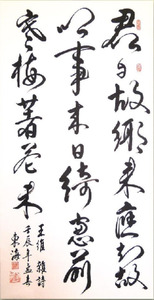 君自故鄉來應知故
鄉事來日綺窗前
寒梅著花未
王維雜詩
壬辰年孟春
東海